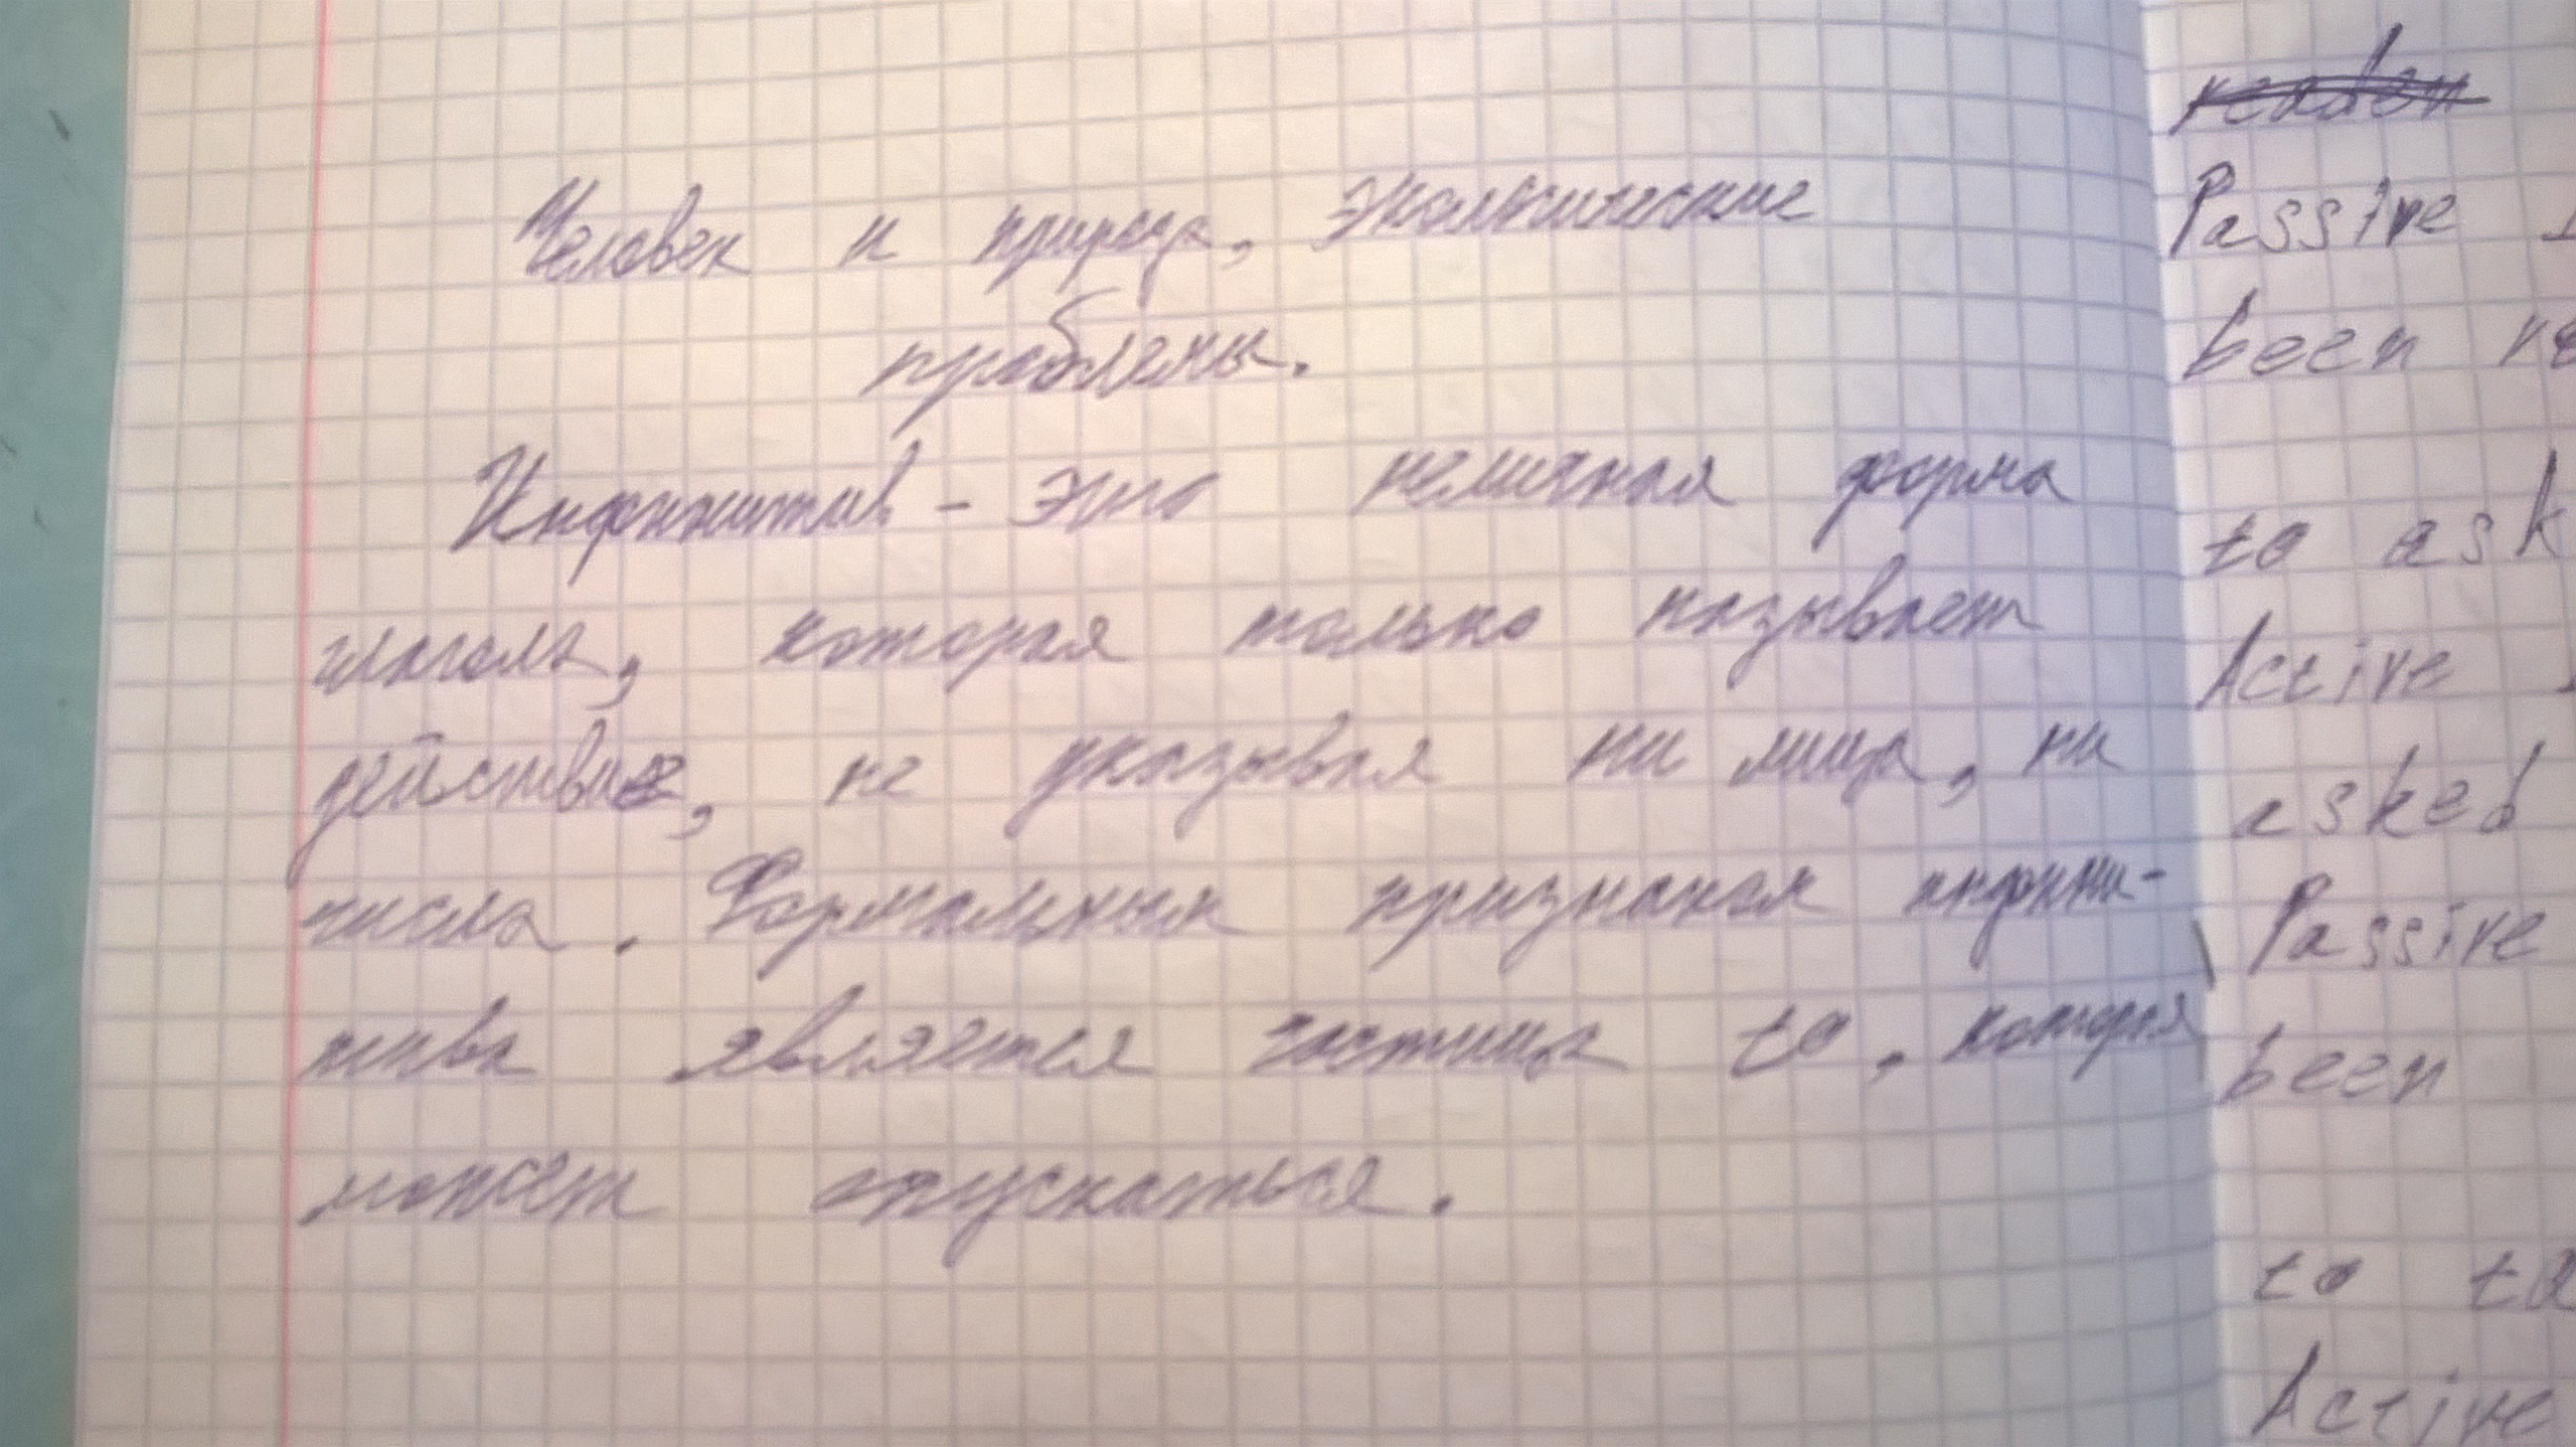 Человек и природа, экологические
проблемы.
Инфинитив - это неличная форма
глагола, которая только называет
действие, не указывая ни лица, ни
числа. Формальным признаком инфини-
тива является частица to, которая
может опускаться.
readen
Passive
been
to ask
Active
asked
Passive
been
to
Active